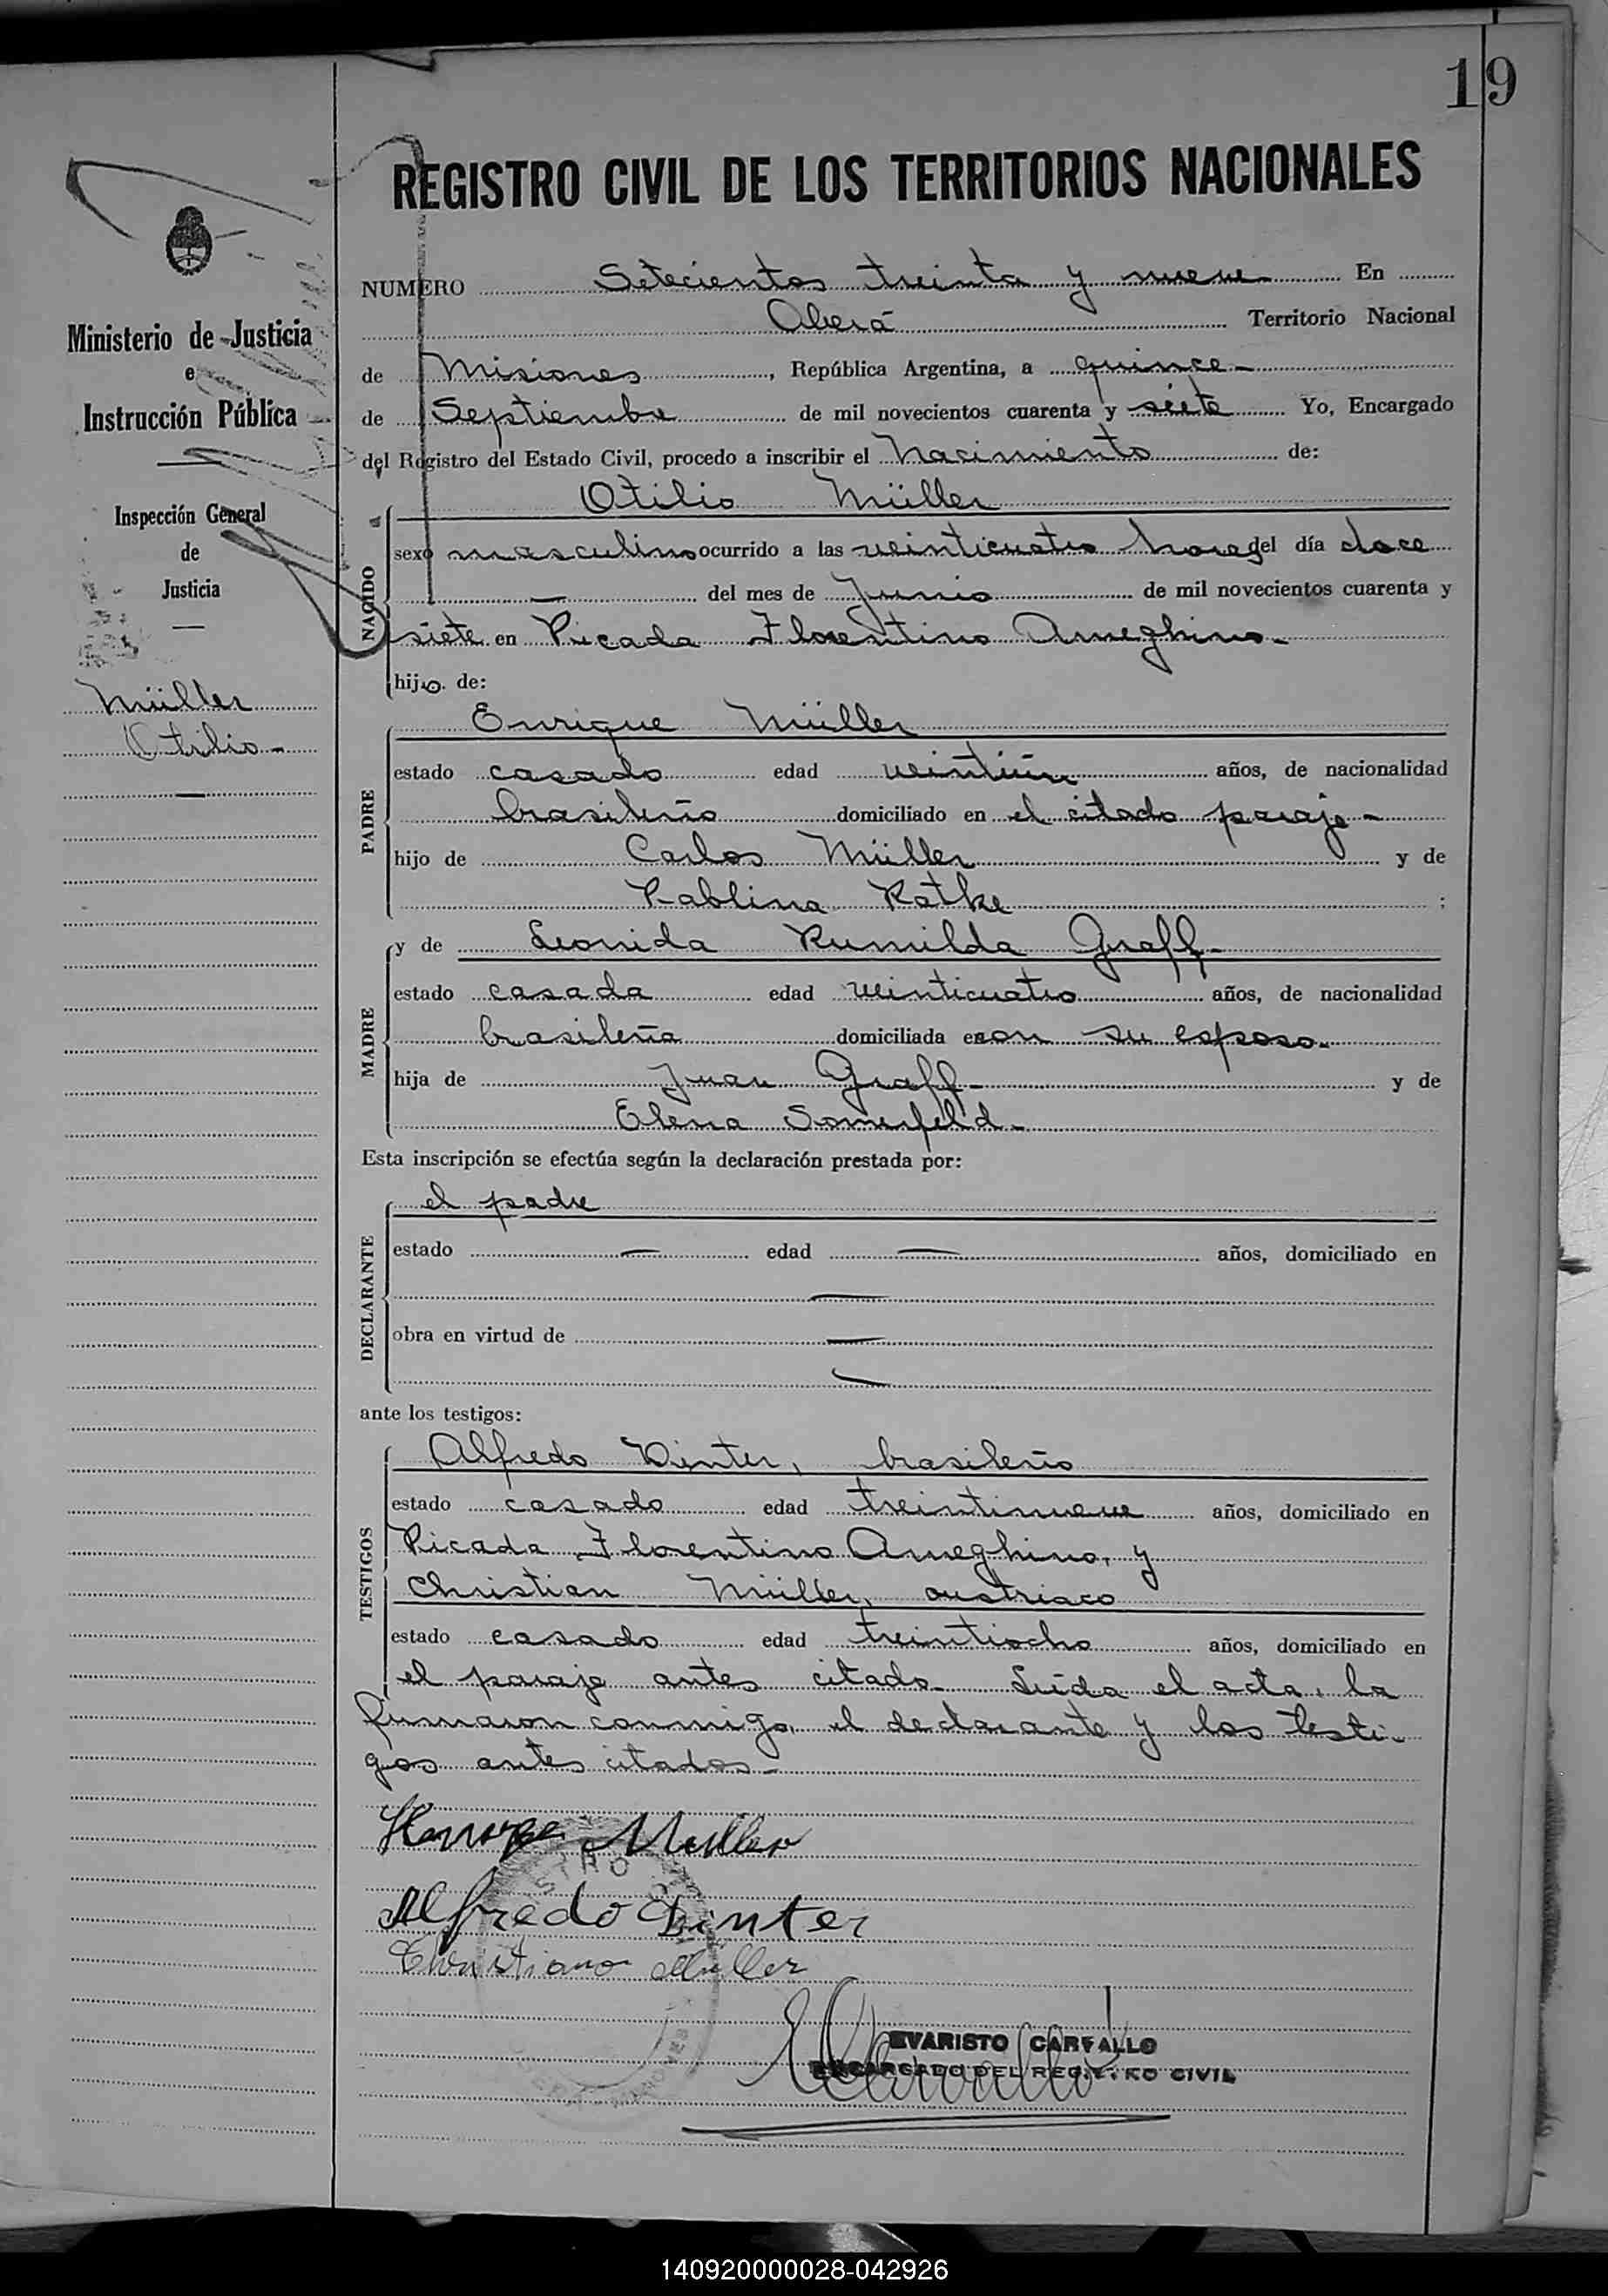 19
REGISTRO CIVIL DE LOS TERRITORIOS NACIONALES
Ministerio de Justicia
e
Instrucción Pública
Inspección General
de
Justicia
Müller
Otilio -
NUMERO Setecientos treinta y nueve En
Oberá Territorio Nacional
de Misiones, República Argentina, a quince -
de Septiembre de mil novecientos cuarenta y siete Yo, Encargado
del Registro del Estado Civil, procedo a inscribir el nacimiento de:
NACIDO
Otilio Müller
sexo masculino ocurrido a las veinticuatro horas del día doce
— del mes de Junio de mil novecientos cuarenta y
siete en Picada Florentino Ameghino -
hijo de:
PADRE
Enrique Müller
estado casado edad veintiún años, de nacionalidad
brasileño domiciliado en el citado paraje -
hijo de Carlos Müller y de
Pablina Ratke ;
MADRE
y de Leonida Rumilda Graff -
estado casada edad veinticuatro años, de nacionalidad
brasileña domiciliada con su esposo -
hija de Juan Graff - y de
Elena Somerfeld -
Esta inscripción se efectúa según la declaración prestada por:
DECLARANTE
el padre
estado — edad — años, domiciliado en
—
obra en virtud de —
—
ante los testigos:
TESTIGOS
Alfredo Dinter, brasileño
estado casado edad treintinueve años, domiciliado en
Picada Florentino Ameghino, y
Christian Müller, austriaco
estado casado edad treintiocho años, domiciliado en
el paraje antes citado - Leída el acta, la
firmaron conmigo, el declarante y los testi-
gos antes citados -
Müller
Alfredo Dinter
Christiano Müller
EVARISTO CARVALLO
ENCARGADO DEL REGISTRO CIVIL
140920000028-042926